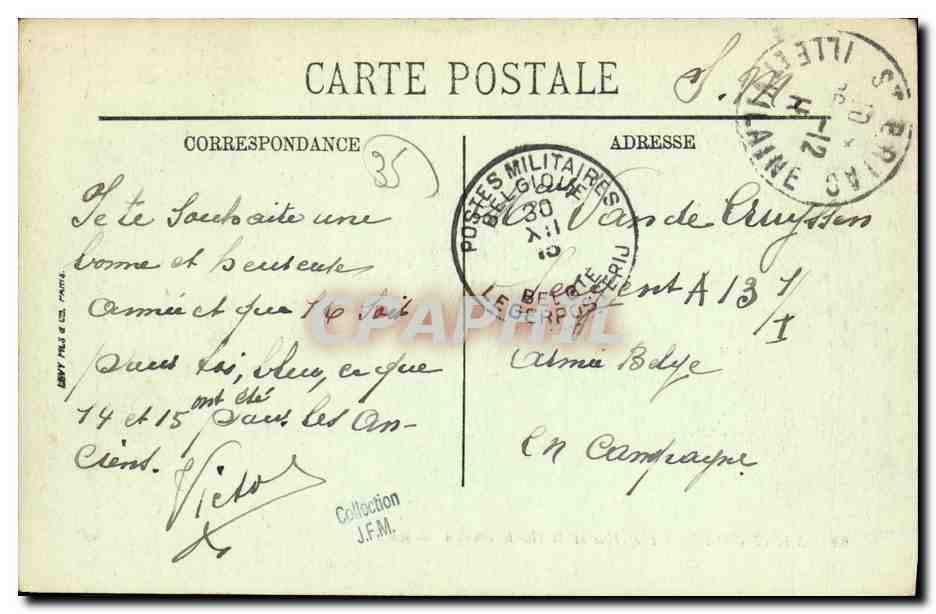 CARTE POSTALE
S. M
CORRESPONDANCE
ADRESSE
35
Je te souhaite une
bonne et heureuse
année et que 16 soit
pour toi, bleu, ce que
14 et 15 ont été pour les an-
ciens.
Victor
LEVY FILS & CO. PARIS.
Van de Cruyssen
A 13 I/I
Armée Belge
en campagne
POSTES MILITAIRES
BELGIQUE
30
XII
15
BELGIE
LEGERPOSTERIJ
St BRIAC
ILLE ET VILAINE
1-12
Collection
J.F.M.
CPAPHIL